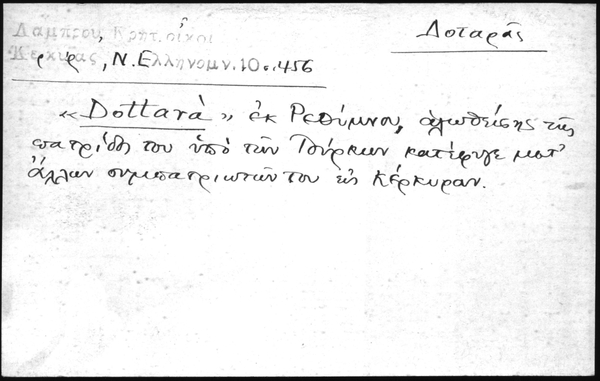 Δοταρᾶς
Λάμπρου, Κρητ. οἶκοι
Κερκύρας, Ν. Ἑλληνομν. 10. 456
«Dottarà» ἐκ Ρεθύμνου, ἁλωθείσης τῆς
πατρίδος του ὑπὸ τῶν Τούρκων κατέφυγε μετ'
ἄλλων συμπατριωτῶν του εἰς Κέρκυραν.